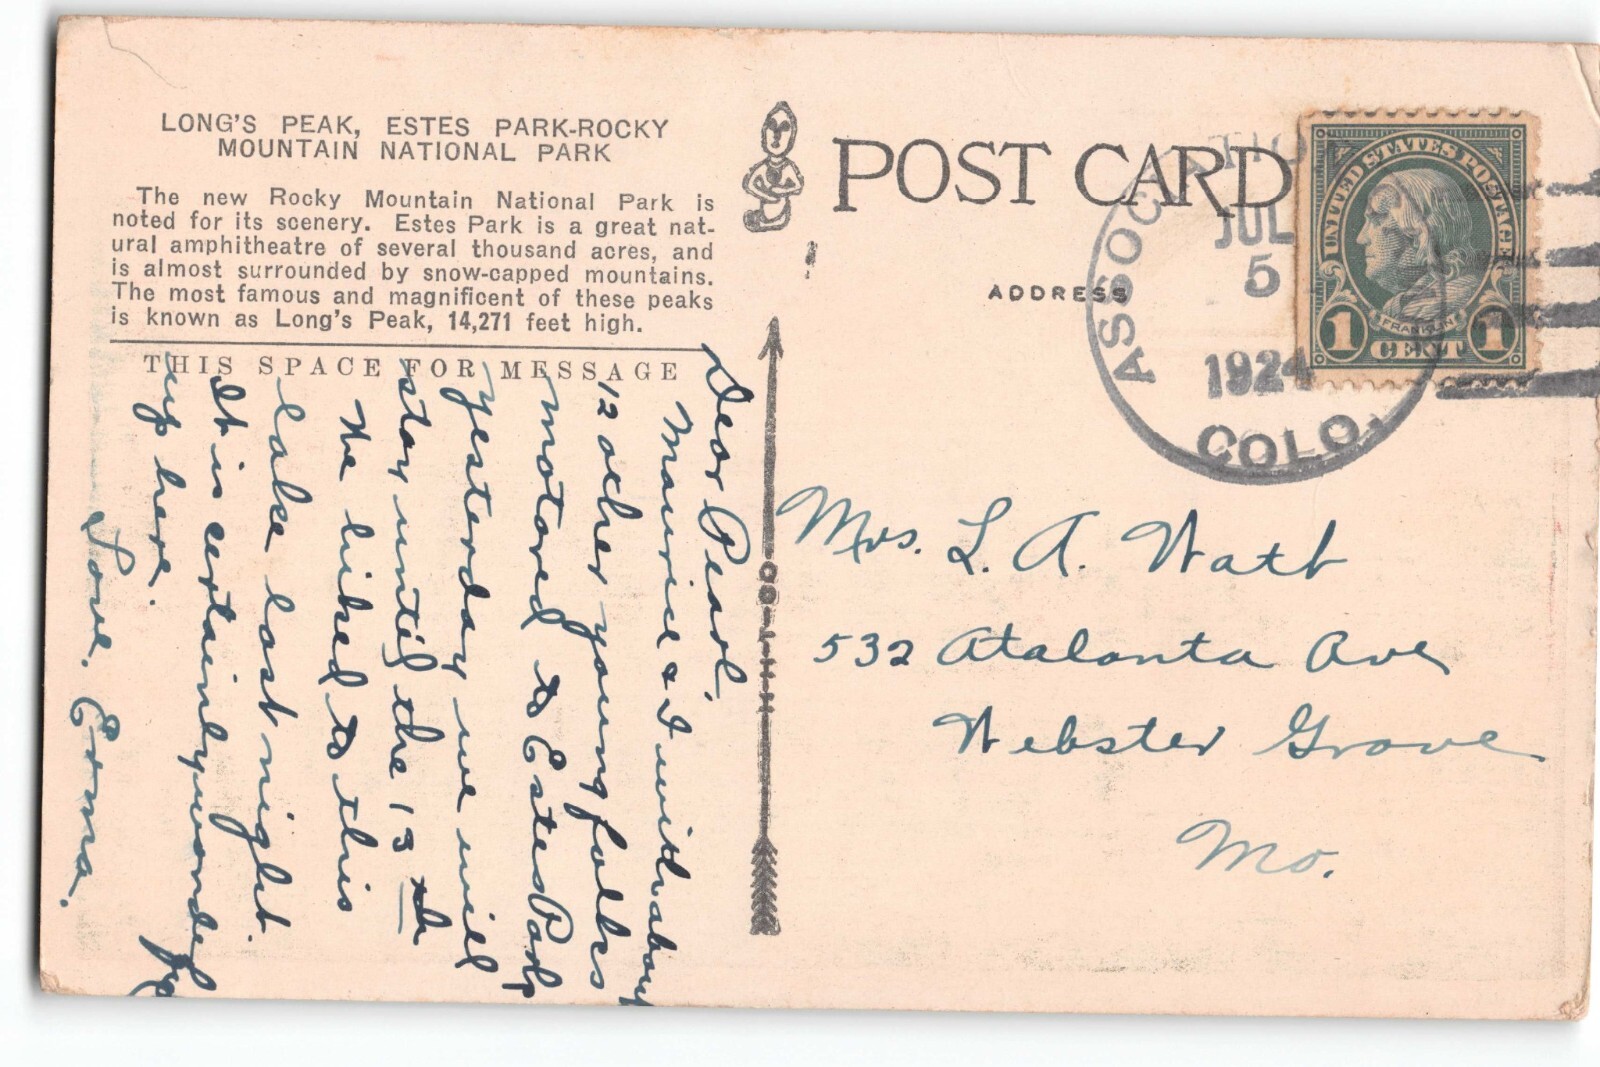 LONG'S PEAK, ESTES PARK-ROCKY
MOUNTAIN NATIONAL PARK
The new Rocky Mountain National Park is
noted for its scenery. Estes Park is a great nat-
ural amphitheatre of several thousand acres, and
is almost surrounded by snow-capped mountains.
The most famous and magnificent of these peaks
is known as Long's Peak, 14,271 feet high.
THIS SPACE FOR MESSAGE
Dear Pearl,
Maurice & I with about
12 other young folks
motored to Estes Park
yesterday we will
stay until the 13th
We hiked to this
lake last night.
It is certainly wonderful
up here.
Love. Erma.
POST CARD
ADDRESS
ASSOCIATION CAMP
JUL
5
1924
COLO.
UNITED STATES POSTAGE
FRANKLIN
1 CENT 1
Mrs. L. A. Watt
532 Atalanta Ave
Webster Grove
Mo.